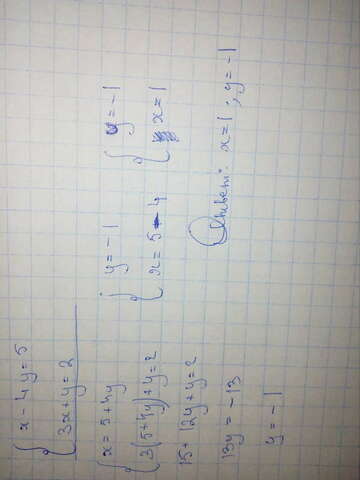 x - 4y = 5
3x + y = 2
x = 5 + 4y
3(5 + 4y) + y = 2
15 + 12y + y = 2
13y = -13
y = -1
y = -1
x = 5 - 4
y = -1
x = 1
Ответ: x = 1; y = -1